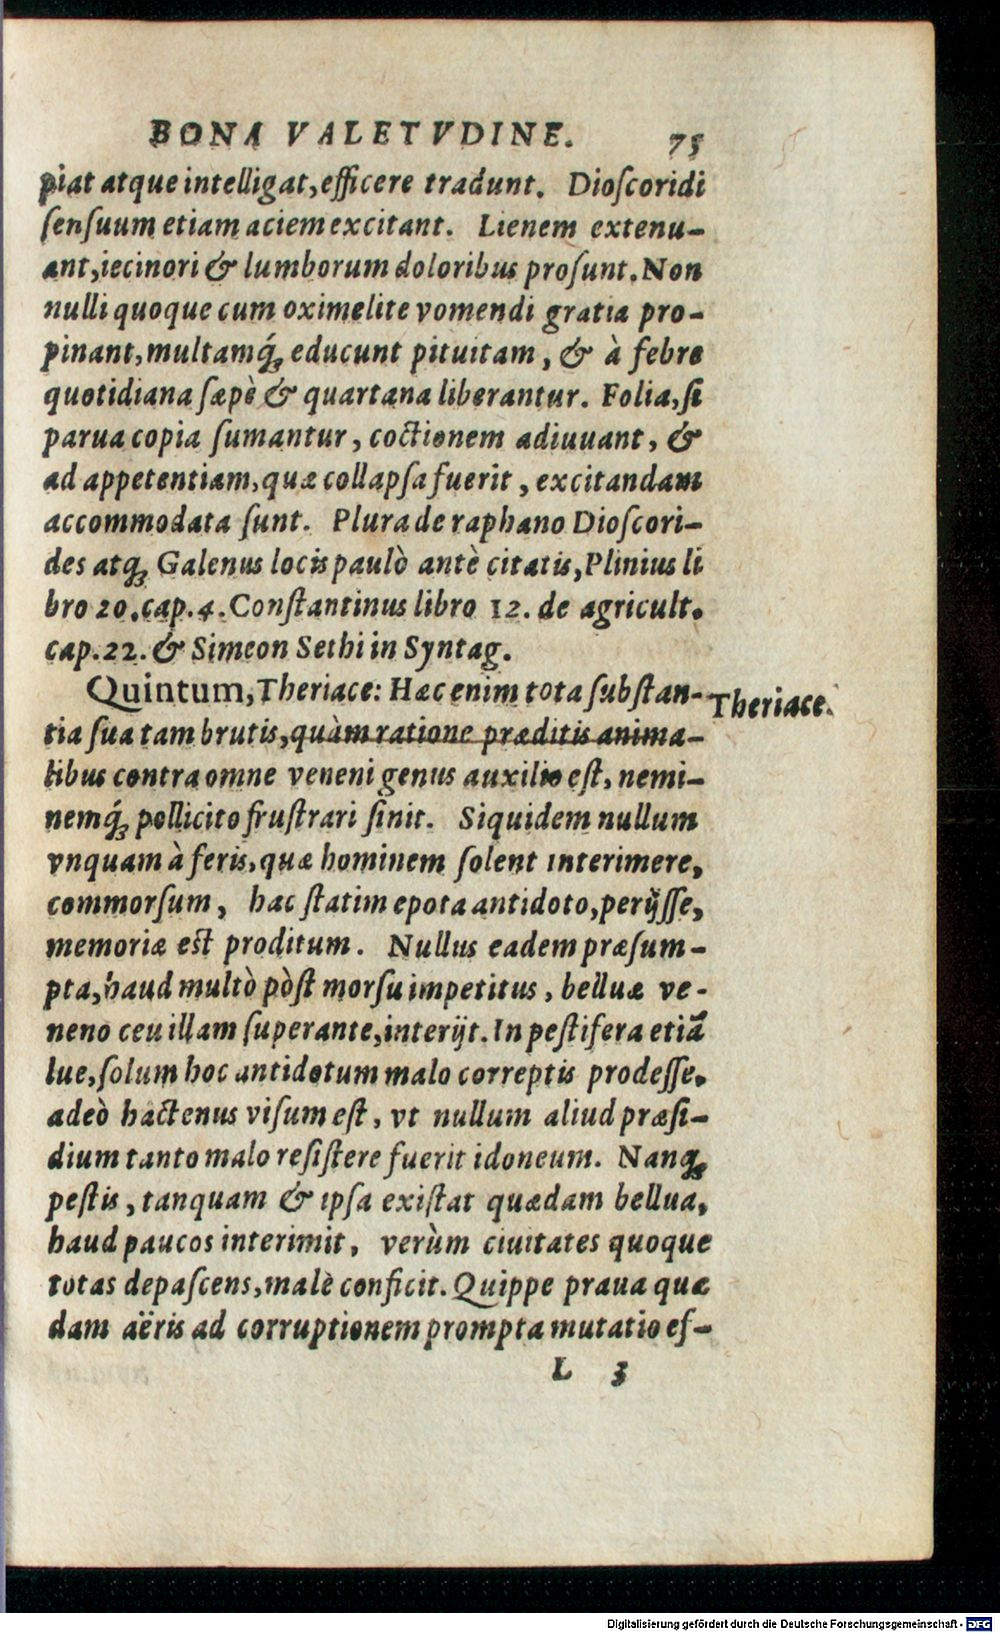 BONA VALETVDINE. 75
piat atque intelligat, efficere tradunt. Dioſcoridi
ſenſuum etiam aciem excitant. Lienem extenu-
ant, iecinori & lumborum doloribus proſunt. Non
nulli quoque cum oximelite vomendi gratia pro-
pinant, multamq́ꝫ educunt pituitam, & à febre
quotidiana ſæpè & quartana liberantur. Folia, ſi
parua copia ſumantur, coctionem adiuuant, &
ad appetentiam, quæ collapſa fuerit, excitandam
accommodata ſunt. Plura de raphano Dioſcori-
des atqꝫ Galenus locis paulò antè citatis, Plinius li
bro 20. cap. 4. Conſtantinus libro 12. de agricult.
cap. 22. & Simeon Sethi in Syntag.
Quintum, Theriace: Hæc enim tota ſubſtan-
Theriace.
tia ſua tam brutis, quàm ratione præditis anima-
libus contra omne veneni genus auxilio eſt, nemi-
nemq́ꝫ pollicito fruſtrari ſinit. Siquidem nullum
vnquam à feris, quæ hominem ſolent interimere,
commorſum, hac ſtatim epota antidoto, perijſſe,
memoriæ eſt proditum. Nullus eadem præſum-
pta, haud multò pòſt morſu impetitus, belluæ ve-
neno ceu illam ſuperante, interijt. In peſtifera etiā
lue, ſolum hoc antidotum malo correptis prodeſſe,
adeò hactenus viſum eſt, vt nullum aliud præſi-
dium tanto malo reſiſtere fuerit idoneum. Nanqꝫ
peſtis, tanquam & ipſa exiſtat quædam bellua,
haud paucos interimit, verùm ciuitates quoque
totas depaſcens, malè conficit. Quippe praua quæ
dam aëris ad corruptionem prompta mutatio ef-
L 3
Digitalisierung gefördert durch die Deutsche Forschungsgemeinschaft - DFG